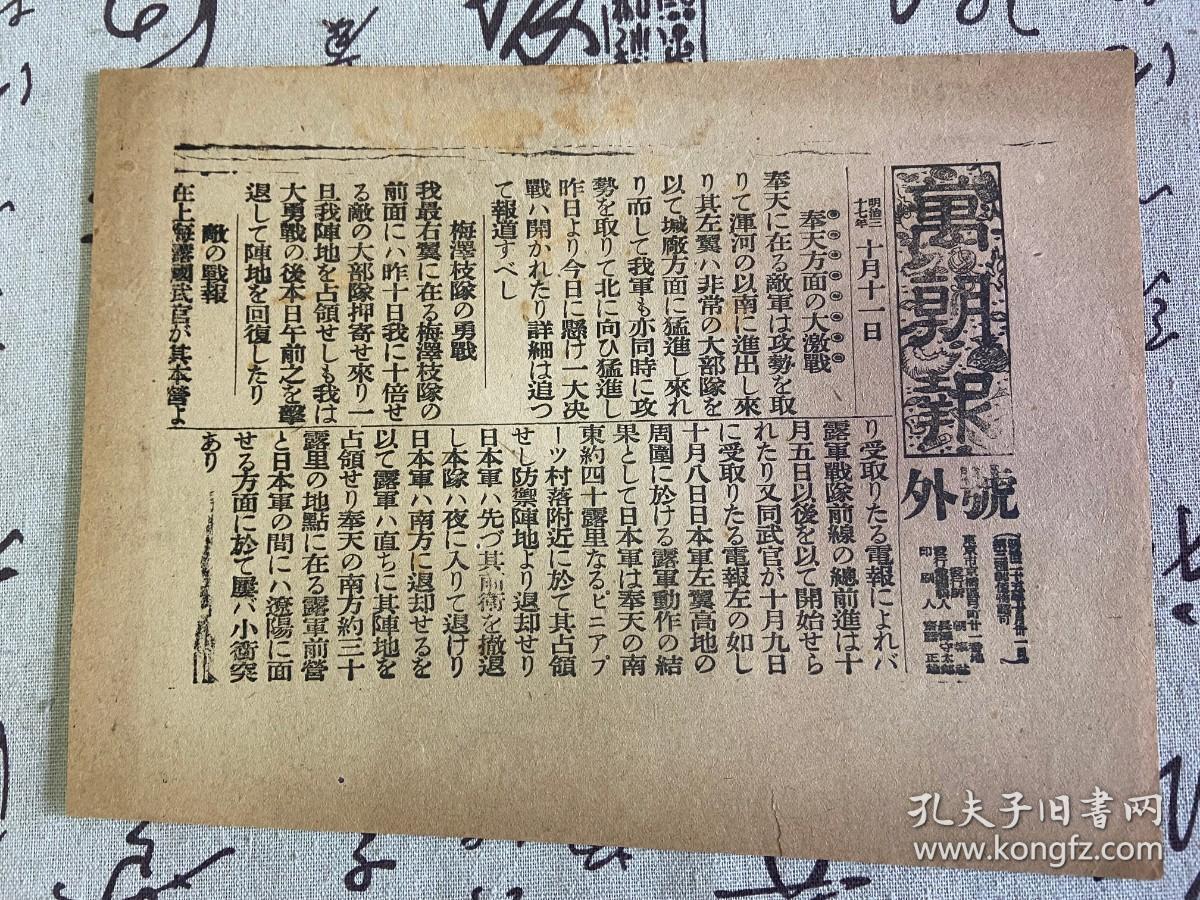 萬朝報
號外
明治三十七年 十月十一日
奉天方面の大激戰
奉天に在る敵軍は攻勢を取
りて渾河の以南に進出し來
り其左翼ハ非常の大部隊を
以て城廠方面に猛進し來れ
り而して我軍も亦同時に攻
勢を取りて北に向ひ猛進し
昨日より今日に懸け一大决
戰ハ開かれたり詳細は追つ
て報道すべし
梅澤枝隊の勇戰
我最右翼に在る梅澤枝隊の
前面にハ昨十日我に十倍せ
る敵の大部隊押寄せ來り一
旦我陣地を占領せしも我は
大勇戰の後本日午前之を擊
退して陣地を回復したり
敵の戰報
在上海露國武官が其本營よ
り受取りたる電報によれバ
露軍戰隊前線の總前進は十
月五日以後を以て開始せら
れたり又同武官が十月九日
に受取りたる電報左の如し
十月八日日本軍左翼高地の
周圍に於ける露軍動作の結
果として日本軍は奉天の南
東約四十露里なるピニアプ
ーツ村落附近に於て其占領
せし防禦陣地より退却せり
日本軍ハ先づ其前衛を撤退
し本隊ハ夜に入りて退けり
日本軍ハ南方に退却せるを
以て露軍ハ直ちに其陣地を
占領せり奉天の南方約三十
露里の地點に在る露軍前營
と日本軍の間にハ遼陽に面
せる方面に於て屢バ小衝突
あり
孔夫子旧书网
www.kongfz.com